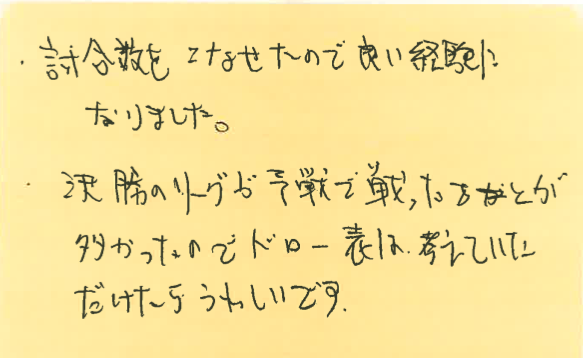 ・試合数をこなせたので良い経験に
なりました。
・決勝のリーグが予戦で戦ったことが
多かったのでドロー表は考えていた
だけたらうれしいです.